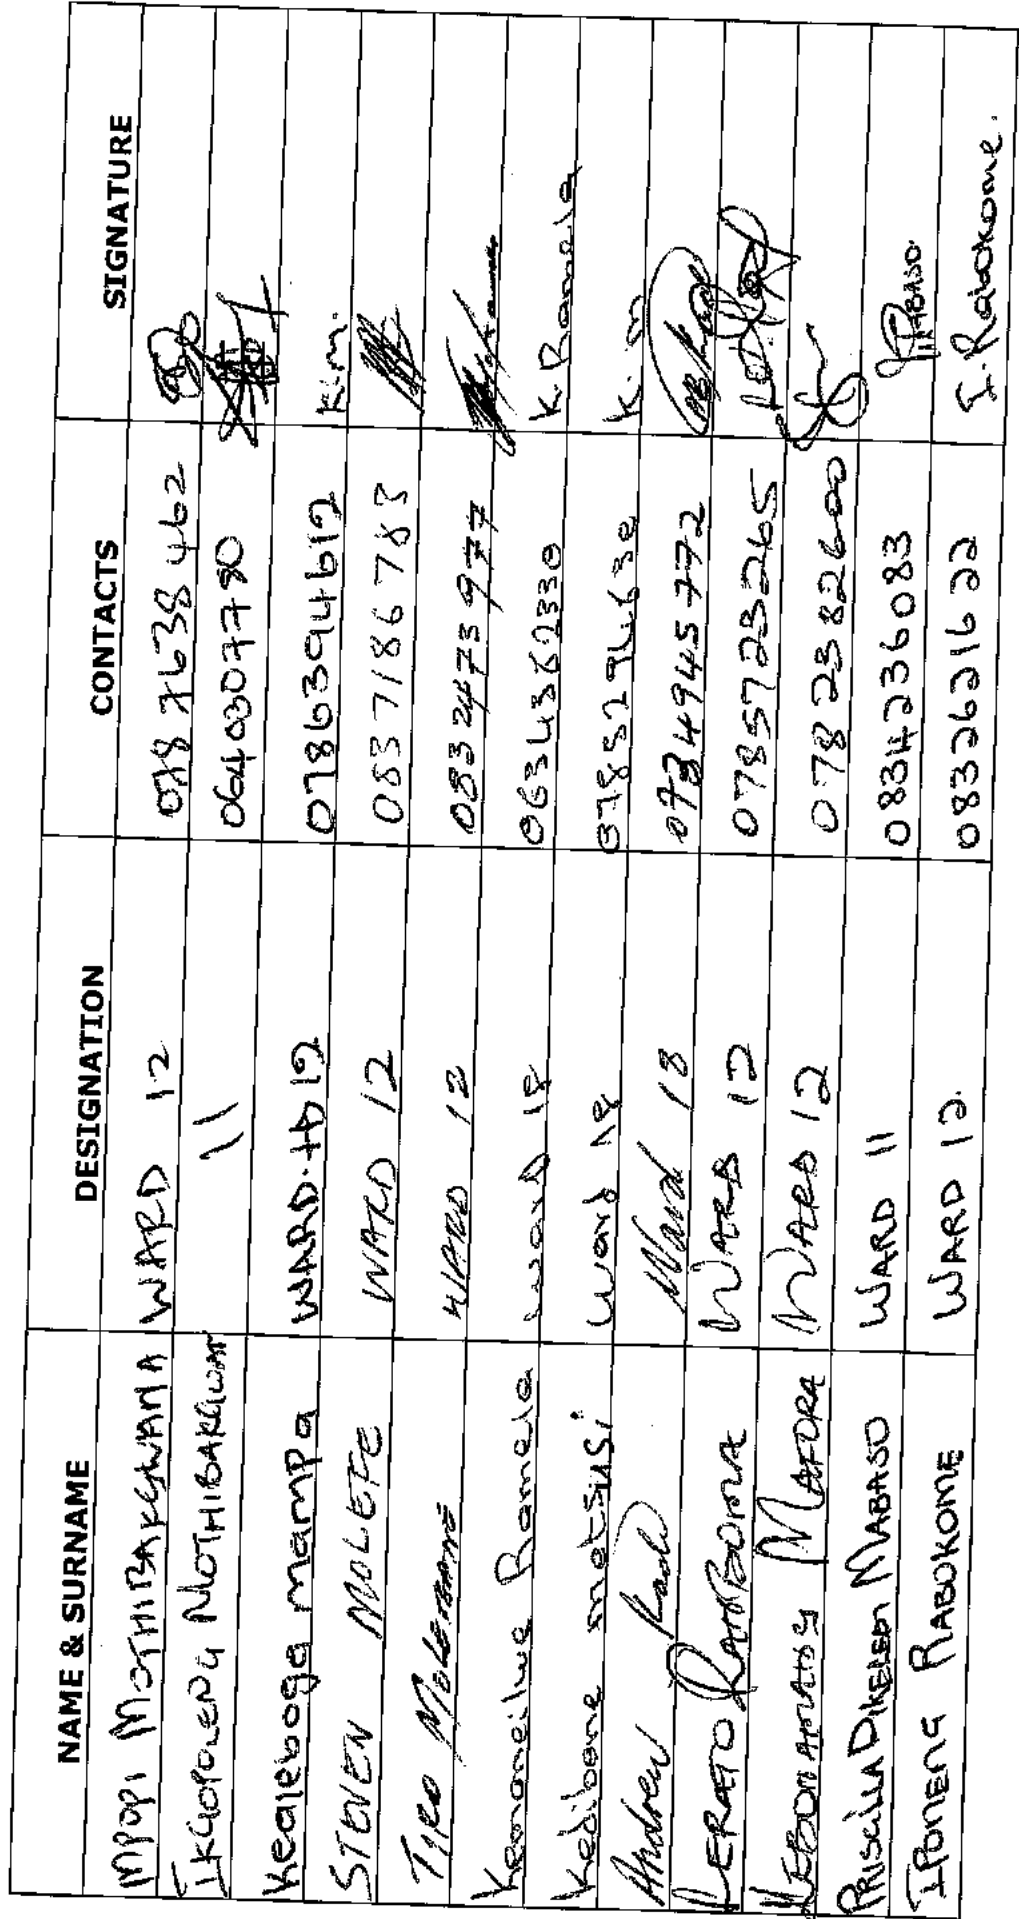 NAME & SURNAME DESIGNATION CONTACTS SIGNATURE
MPOPI MOTHIBAKGWANA WARD 12 078 7638 462
IKGOPOLENG MOTHIBAKGWAN 11 064 0307780
Kealeboga mampa WARD 12 0786394612 K.m.
STEVEN MOLEFE WARD 12 0837186783
Tiro WARD 12 0832473977
Kemoneilwe Ramela ward 18 06343862330 K. Ramela
Kedibone metsiusi ward 18 K. m
Andrew Ward 18 0734945772
LERATO RAMPBOMA WARD 12 0785723265
MAFORA WARD 12 078 2382600
PRISCILLA DIKELEDI MABASO WARD 11 0834236083 MABASO
IPONENG RABOKOME WARD 12. 0832621622 I. Rabokome.